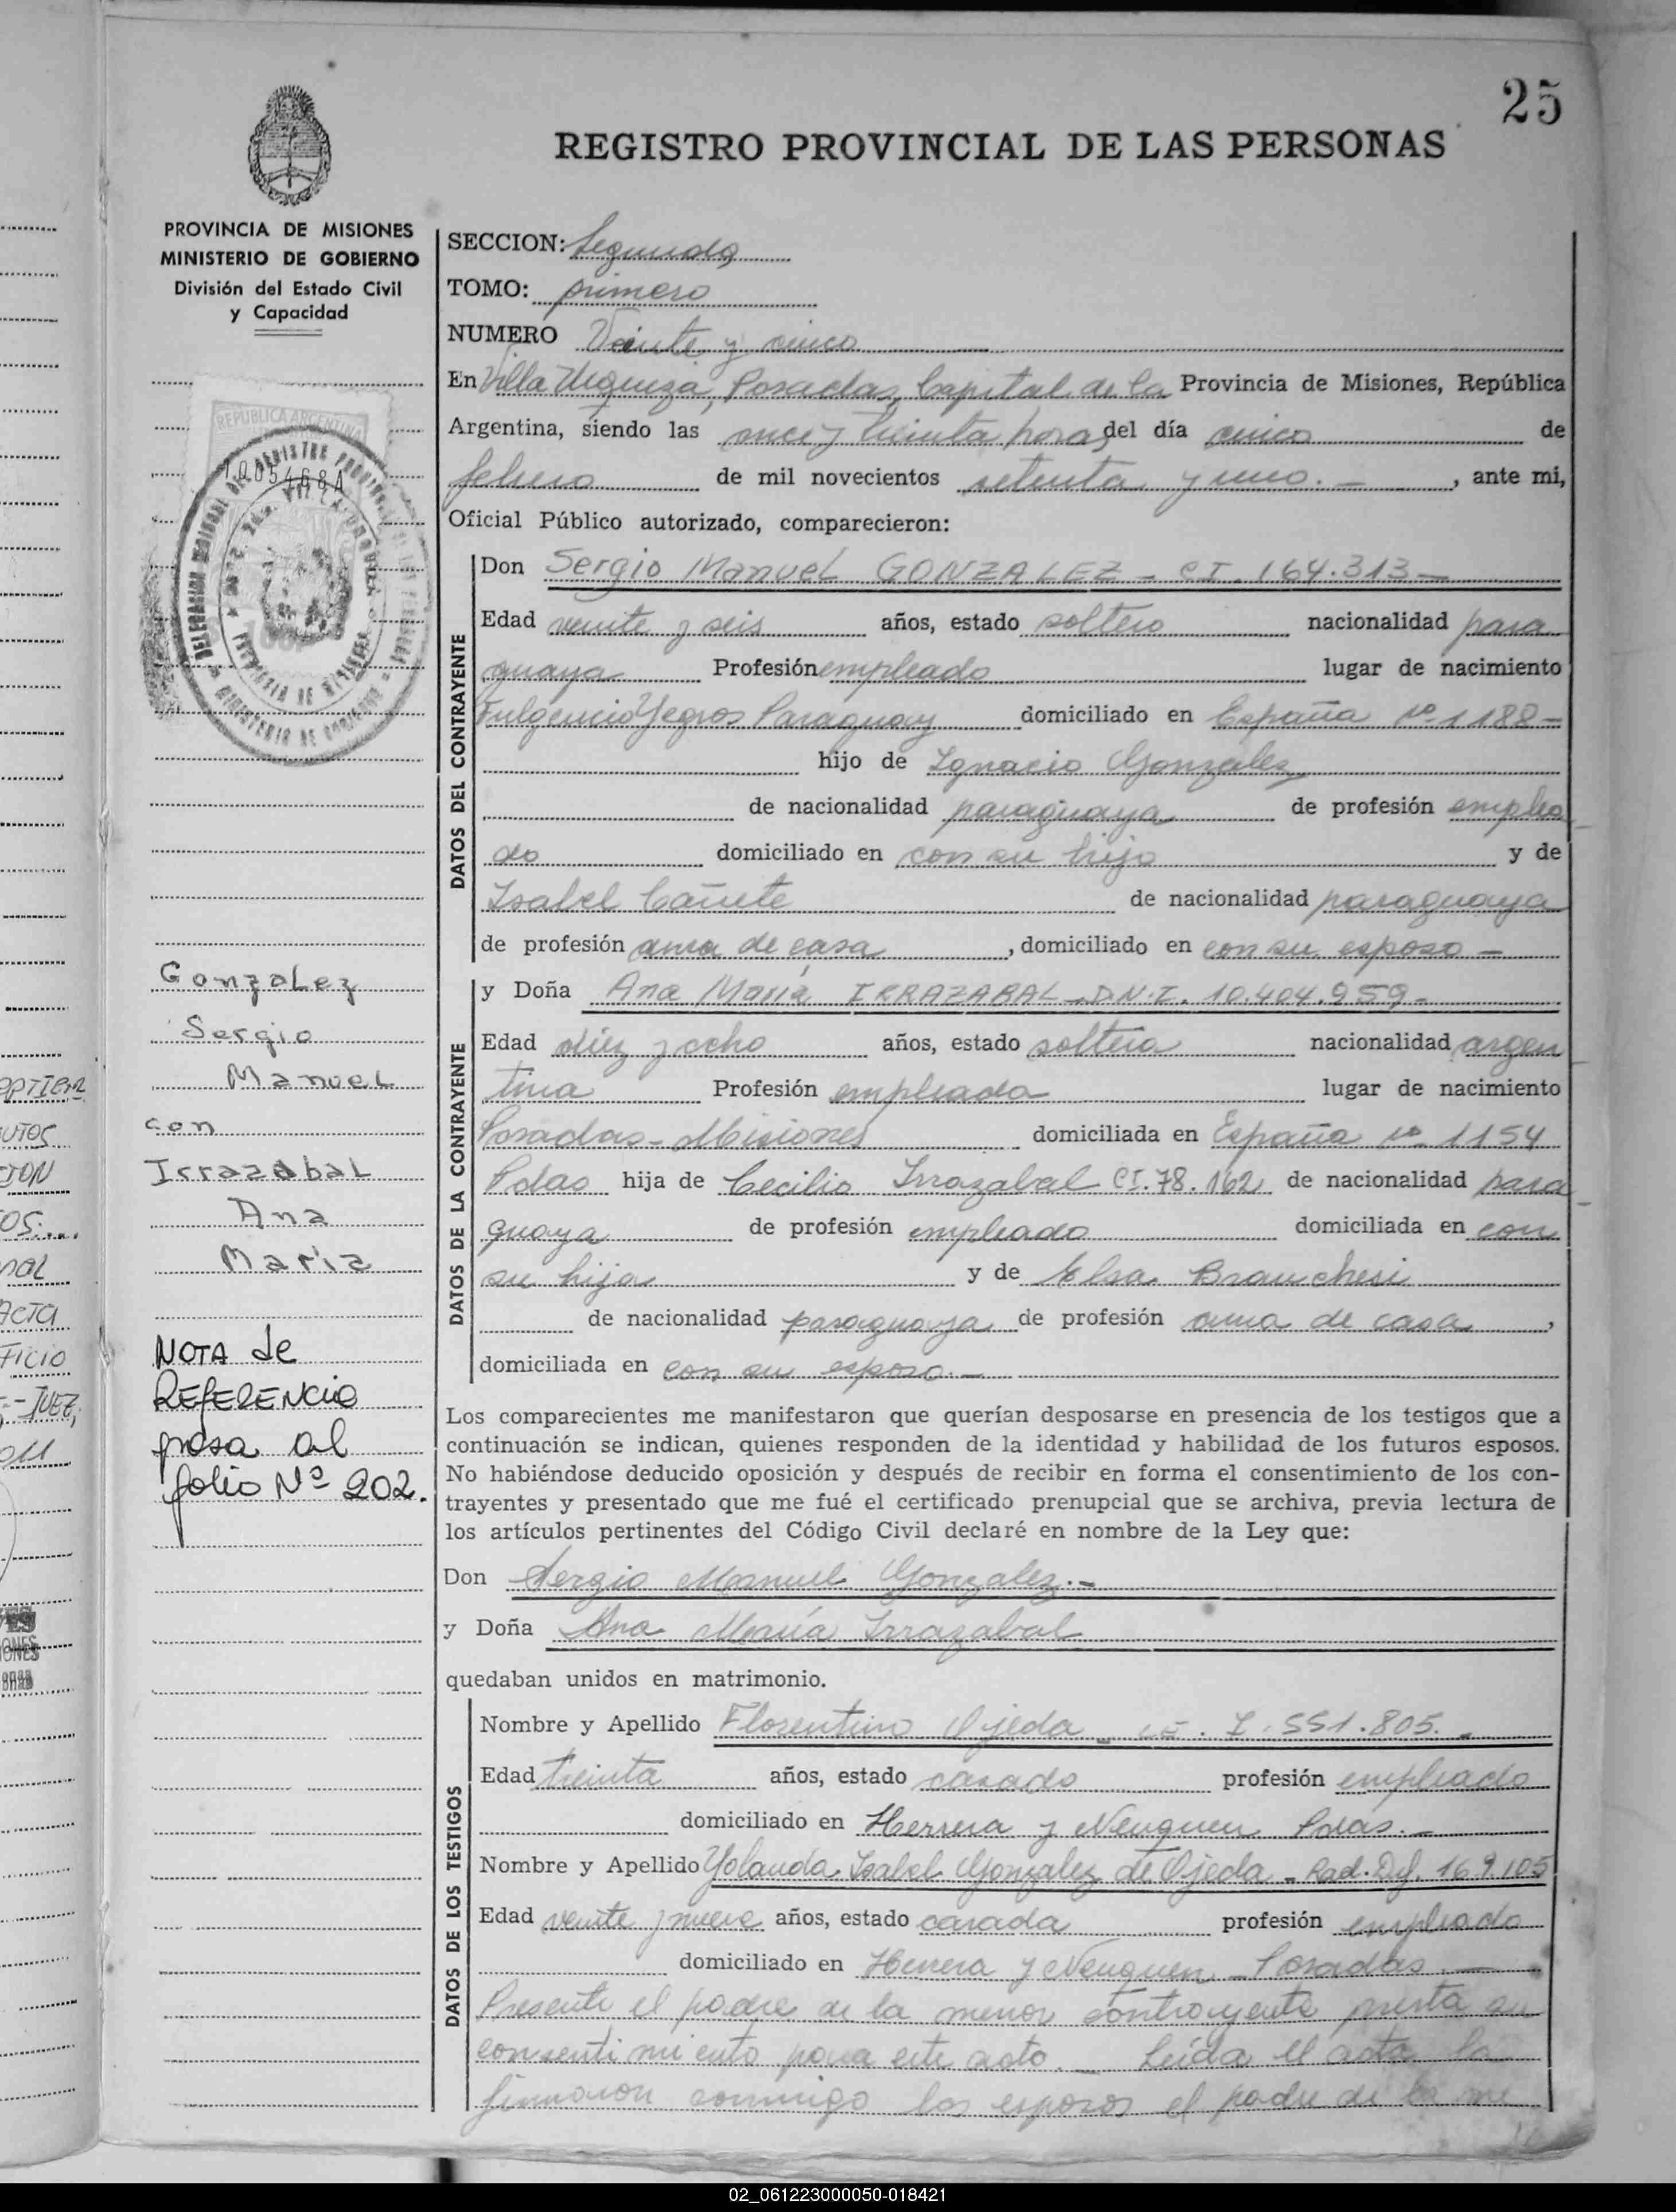 25
REGISTRO PROVINCIAL DE LAS PERSONAS
PROVINCIA DE MISIONES
MINISTERIO DE GOBIERNO
División del Estado Civil
y Capacidad
REPUBLICA ARGENTINA
SECCION: Segunda
TOMO: primero
NUMERO Veinte y cinco
En Villa Urquiza, Posadas, Capital de la Provincia de Misiones, República
Argentina, siendo las once y treinta horas del día cinco de
febrero de mil novecientos setenta y uno. - , ante mi,
Oficial Público autorizado, comparecieron:
DATOS DEL CONTRAYENTE
Don Sergio Manuel GONZALEZ - CI. 164.313 -
Edad veinte y seis años, estado soltero nacionalidad para
guaya Profesión empleado lugar de nacimiento
Fulgencio Yegros Paraguay domiciliado en España Nº 1188 -
hijo de Ignacio Gonzalez
de nacionalidad paraguaya de profesión emplea
do domiciliado en con su hijo y de
Isabel Cañete de nacionalidad paraguaya
de profesión ama de casa , domiciliado en con su esposo -
DATOS DE LA CONTRAYENTE
y Doña Ana María IRRAZABAL - D.N.I. 10.404.959 -
Edad diez y ocho años, estado soltera nacionalidad argen
tina Profesión empleada lugar de nacimiento
Posadas - Misiones domiciliada en España Nº 1154
Pdas hija de Cecilio Irrazabal CI. 78.162 de nacionalidad para
guaya de profesión empleado domiciliada en con
su hija y de Elsa Branchesi
de nacionalidad paraguaya de profesión ama de casa ,
domiciliada en con su esposo. -
Los comparecientes me manifestaron que querían desposarse en presencia de los testigos que a
continuación se indican, quienes responden de la identidad y habilidad de los futuros esposos.
No habiéndose deducido oposición y después de recibir en forma el consentimiento de los con-
trayentes y presentado que me fué el certificado prenupcial que se archiva, previa lectura de
los artículos pertinentes del Código Civil declaré en nombre de la Ley que:
Don Sergio Manuel Gonzalez. -
y Doña Ana María Irrazabal
quedaban unidos en matrimonio.
DATOS DE LOS TESTIGOS
Nombre y Apellido Florentino Ojeda - LE. 7.551.805. -
Edad treinta años, estado casado profesión empleado
domiciliado en Herrera y Neuquen Pdas. -
Nombre y Apellido Yolanda Isabel Gonzalez de Ojeda - 169.105
Edad veinte y nueve años, estado casada profesión empleado
domiciliado en Herrera y Neuquen Posadas. -
Presente el padre de la menor contrayente presta su
consentimiento para este acto. - Leída el acta la
firmaron conmigo los esposos el padre de la me
Gonzalez
Sergio
Manuel
con
Irrazabal
Ana
Maria
NOTA de
REFERENCIA
pasa al
folio Nº 202.
02_061223000050-018421